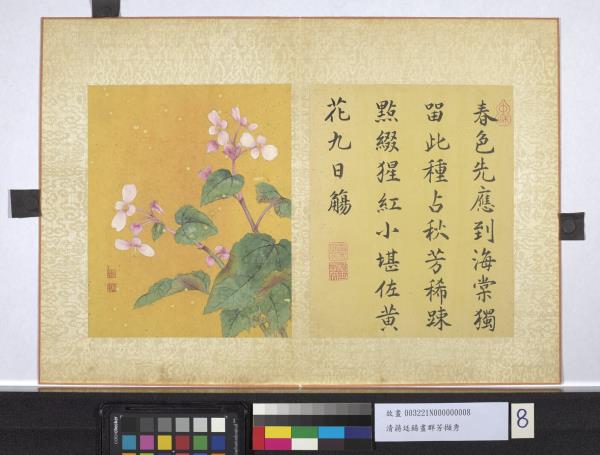 春色先應到海棠獨
留此種占秋芳稀疎
點綴猩紅小堪佐黃
花九日觴
故畫 003221N000000008
清蔣廷錫畫群芳擷秀
8